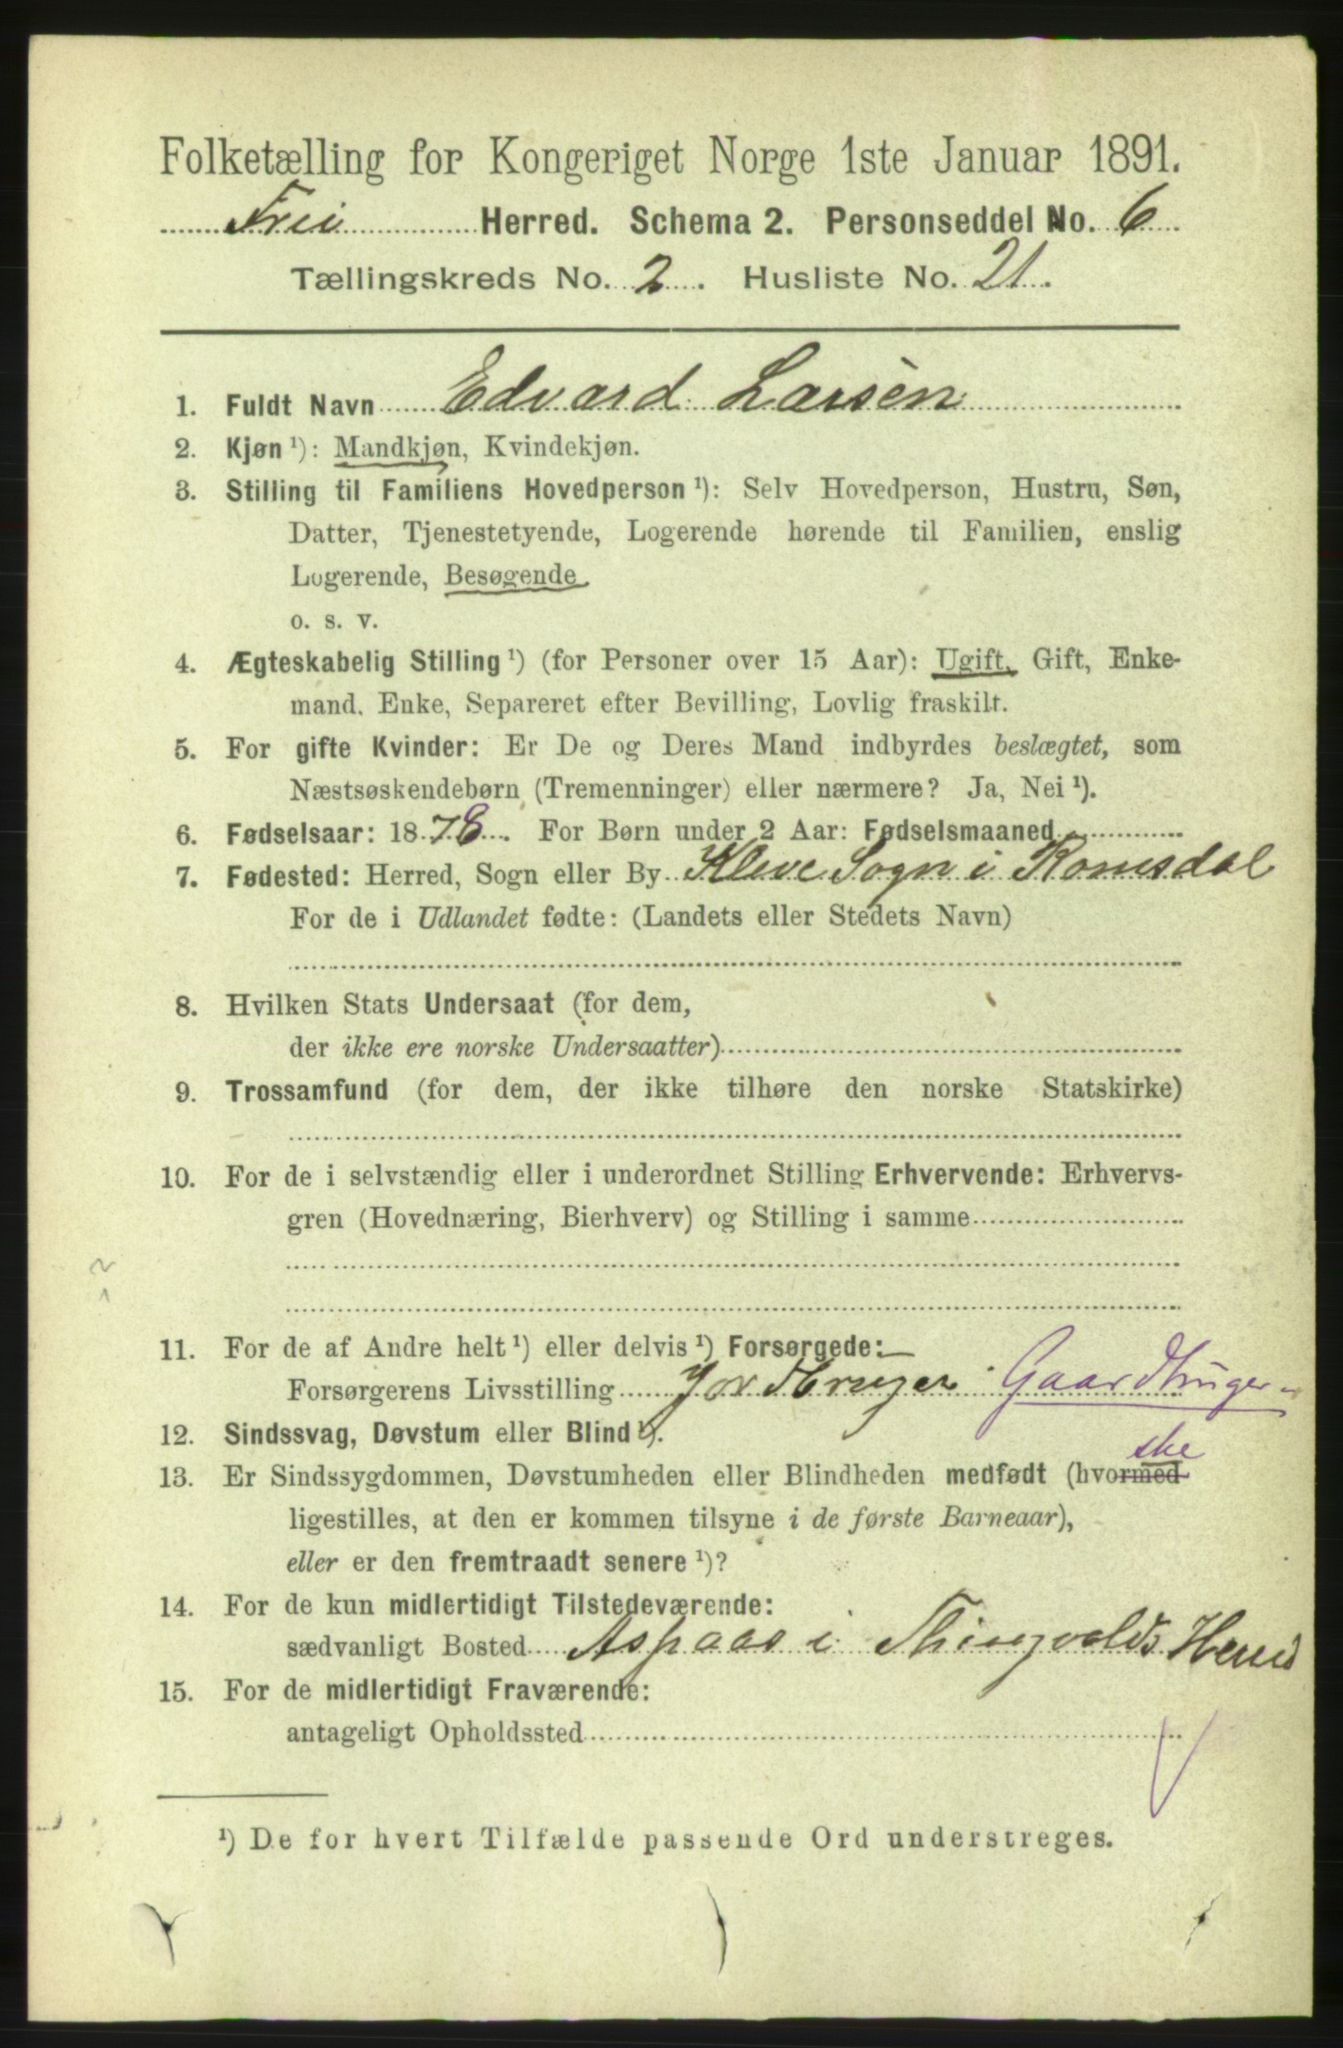 Folketælling for Kongeriget Norge 1ste Januar 1891.
Frei Herred. Schema 2. Personseddel No. 6
Tællingskreds No. 2. Husliste No. 21.
1. Fuldt Navn Edvard Larsèn
2. Kjøn ¹): Mandkjøn, Kvindekjøn.
3. Stilling til Familiens Hovedperson ¹): Selv Hovedperson, Hustru, Søn,
Datter, Tjenestetyende, Logerende hørende til Familien, enslig
Logerende, Besøgende
o. s. v.
4. Ægteskabelig Stilling ¹) (for Personer over 15 Aar): Ugift, Gift, Enke-
mand, Enke, Separeret efter Bevilling, Lovlig fraskilt.
5. For gifte Kvinder: Er De og Deres Mand indbyrdes beslægtet, som
Næstsøskendebørn (Tremenninger) eller nærmere? Ja, Nei ¹).
6. Fødselsaar: 1878. For Børn under 2 Aar: Fødselsmaaned
7. Fødested: Herred, Sogn eller By Kleve Sogn i Romsdal
For de i Udlandet fødte: (Landets eller Stedets Navn)
8. Hvilken Stats Undersaat (for dem,
der ikke ere norske Undersaatter)
9. Trossamfund (for dem, der ikke tilhøre den norske Statskirke)
10. For de i selvstændig eller i underordnet Stilling Erhvervende: Erhvervs-
gren (Hovednæring, Bierhverv) og Stilling i samme
11. For de af Andre helt ¹) eller delvis ¹) Forsørgede:
Forsørgerens Livsstilling Jordbruger Gaardbruger
12. Sindssvag, Døvstum eller Blind ¹).
ske
13. Er Sindssygdommen, Døvstumheden eller Blindheden medfødt (hvormed
ligestilles, at den er kommen tilsyne i de første Barneaar),
eller er den fremtraadt senere ¹)?
14. For de kun midlertidigt Tilstedeværende:
sædvanligt Bosted Aspaas i Thingvolds Herred
15. For de midlertidigt Fraværende:
antageligt Opholdssted
¹) De for hvert Tilfælde passende Ord understreges.